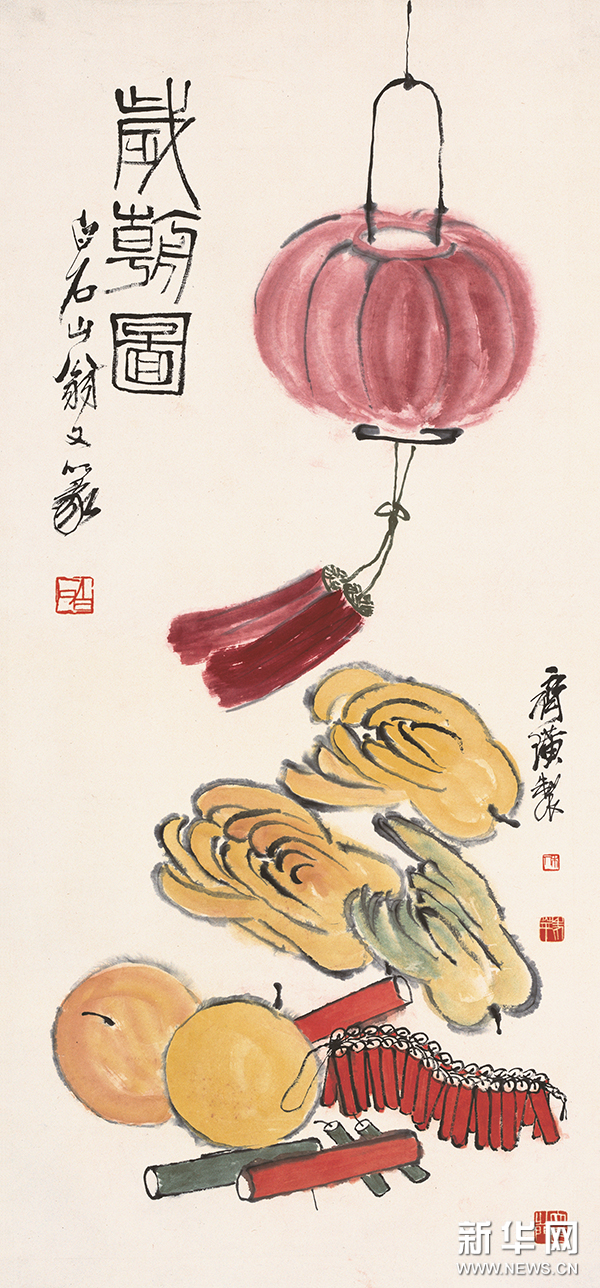 歲朝圖
白石山翁又篆
白石
齊璜製
新华网
WWW.NEWS.CN